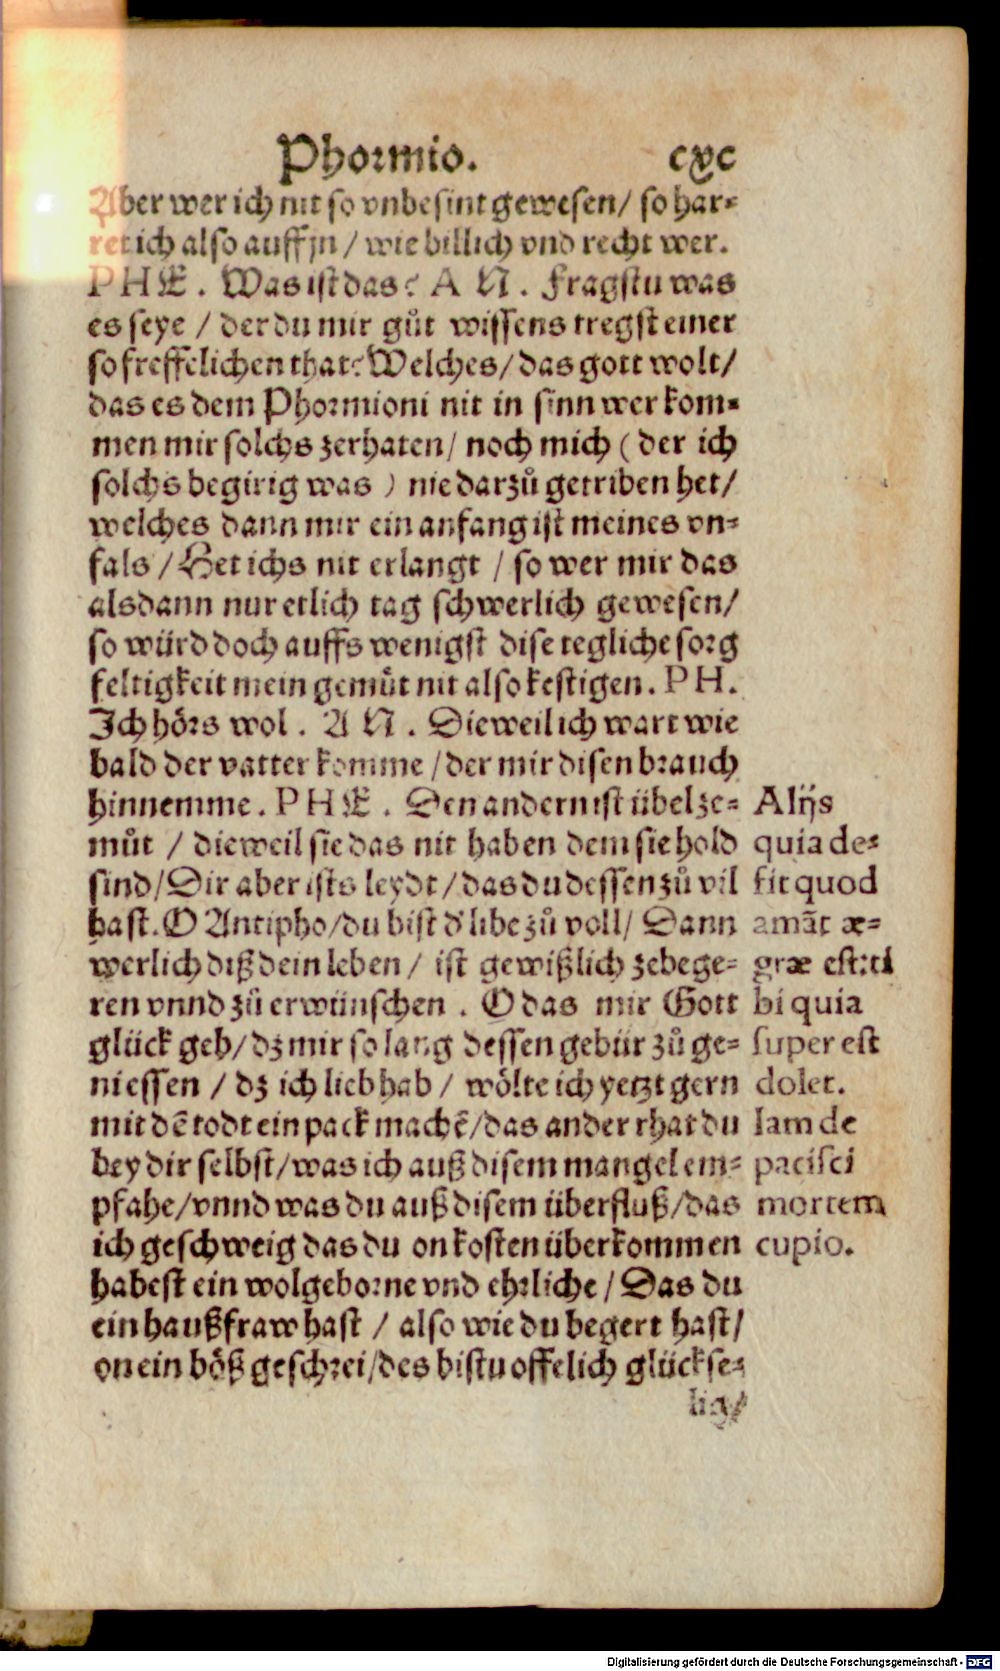 Phormio. cxc
Aber wer ich nit so vnbesint gewesen/ so har⸗
ret ich also auff jn / wie billich vnd recht wer.
PHE. Was ist das? AN. Fragstu was
es seye / der du mir gůt wissens tregst einer
so freffelichen that? Welches/ das gott wolt/
das es dem Phormioni nit in sinn wer kom⸗
men mir solchs zerhaten/ noch mich ( der ich
solchs begirig was ) nie darzů getriben het/
welches dann mir ein anfang ist meines vn⸗
fals / Het ichs nit erlangt / so wer mir das
alsdann nur etlich tag schwerlich gewesen/
so würd doch auffs wenigst dise tegliche sorg
feltigkeit mein gemůt nit also kestigen. PH.
Ich hörs wol. AN. Dieweil ich wart wie
bald der vatter komme / der mir disen brauch
hinnemme. PHE. Den andern ist übel ze⸗
můt / dieweil sie das nit haben dem sie hold
sind/ Dir aber ists leydt/ das du dessen zů vil
hast. O Antipho/ du bist d' libe zů voll/ Dann
werlich diß dein leben/ ist gewißlich zebege⸗
ren vnnd zů erwünschen. O das mir Gott
glück geb/ dz mir so lang dessen gebür zů ge⸗
niessen / dz ich lieb hab / wölte ich yetzt gern
mit dē todt ein pack machē/ das ander rhat du
bey dir selbst/ was ich auß disem mangel em⸗
pfahe/ vnnd was du auß disem überfluß/ das
ich geschweig das du on kosten überkommen
habest ein wolgeborne vnd ehrliche / Das du
ein haußfraw hast / also wie du begert hast/
on ein böß geschrei/ des bistu offelich glückse⸗
lig/
Alijs
quia de⸗
fit quod
amāt æ⸗
græ est: ti
bi quia
super est
dolet.
Iam de
pacisci
mortem
cupio.
Digitalisierung gefördert durch die Deutsche Forschungsgemeinschaft - DFG